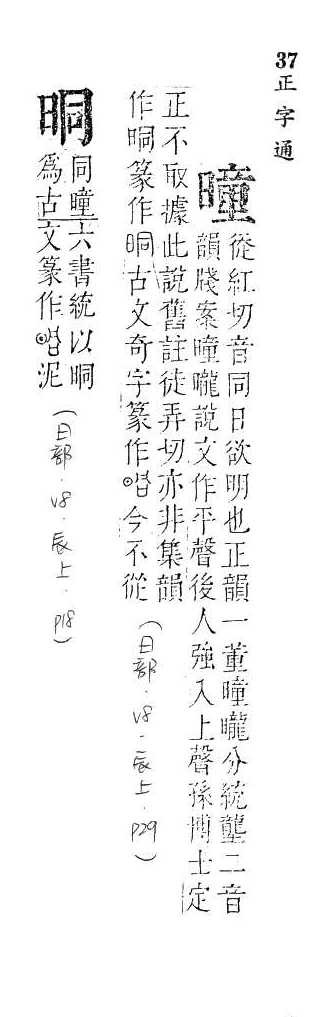 37正字通
曈 從紅切音同日欲明也正韻一董曈曨分統壟二音
韻牋案曈曨說文作平聲後人強入上聲孫愽士定
正不取據此說舊註徒弄切亦非集韻
作晍篆作晍古文奇字篆作 今不從 (日部.v8.辰上.p29)
晍 同曈六書統以晍
爲古文篆作 泥 (日部.v8.辰上.p18)